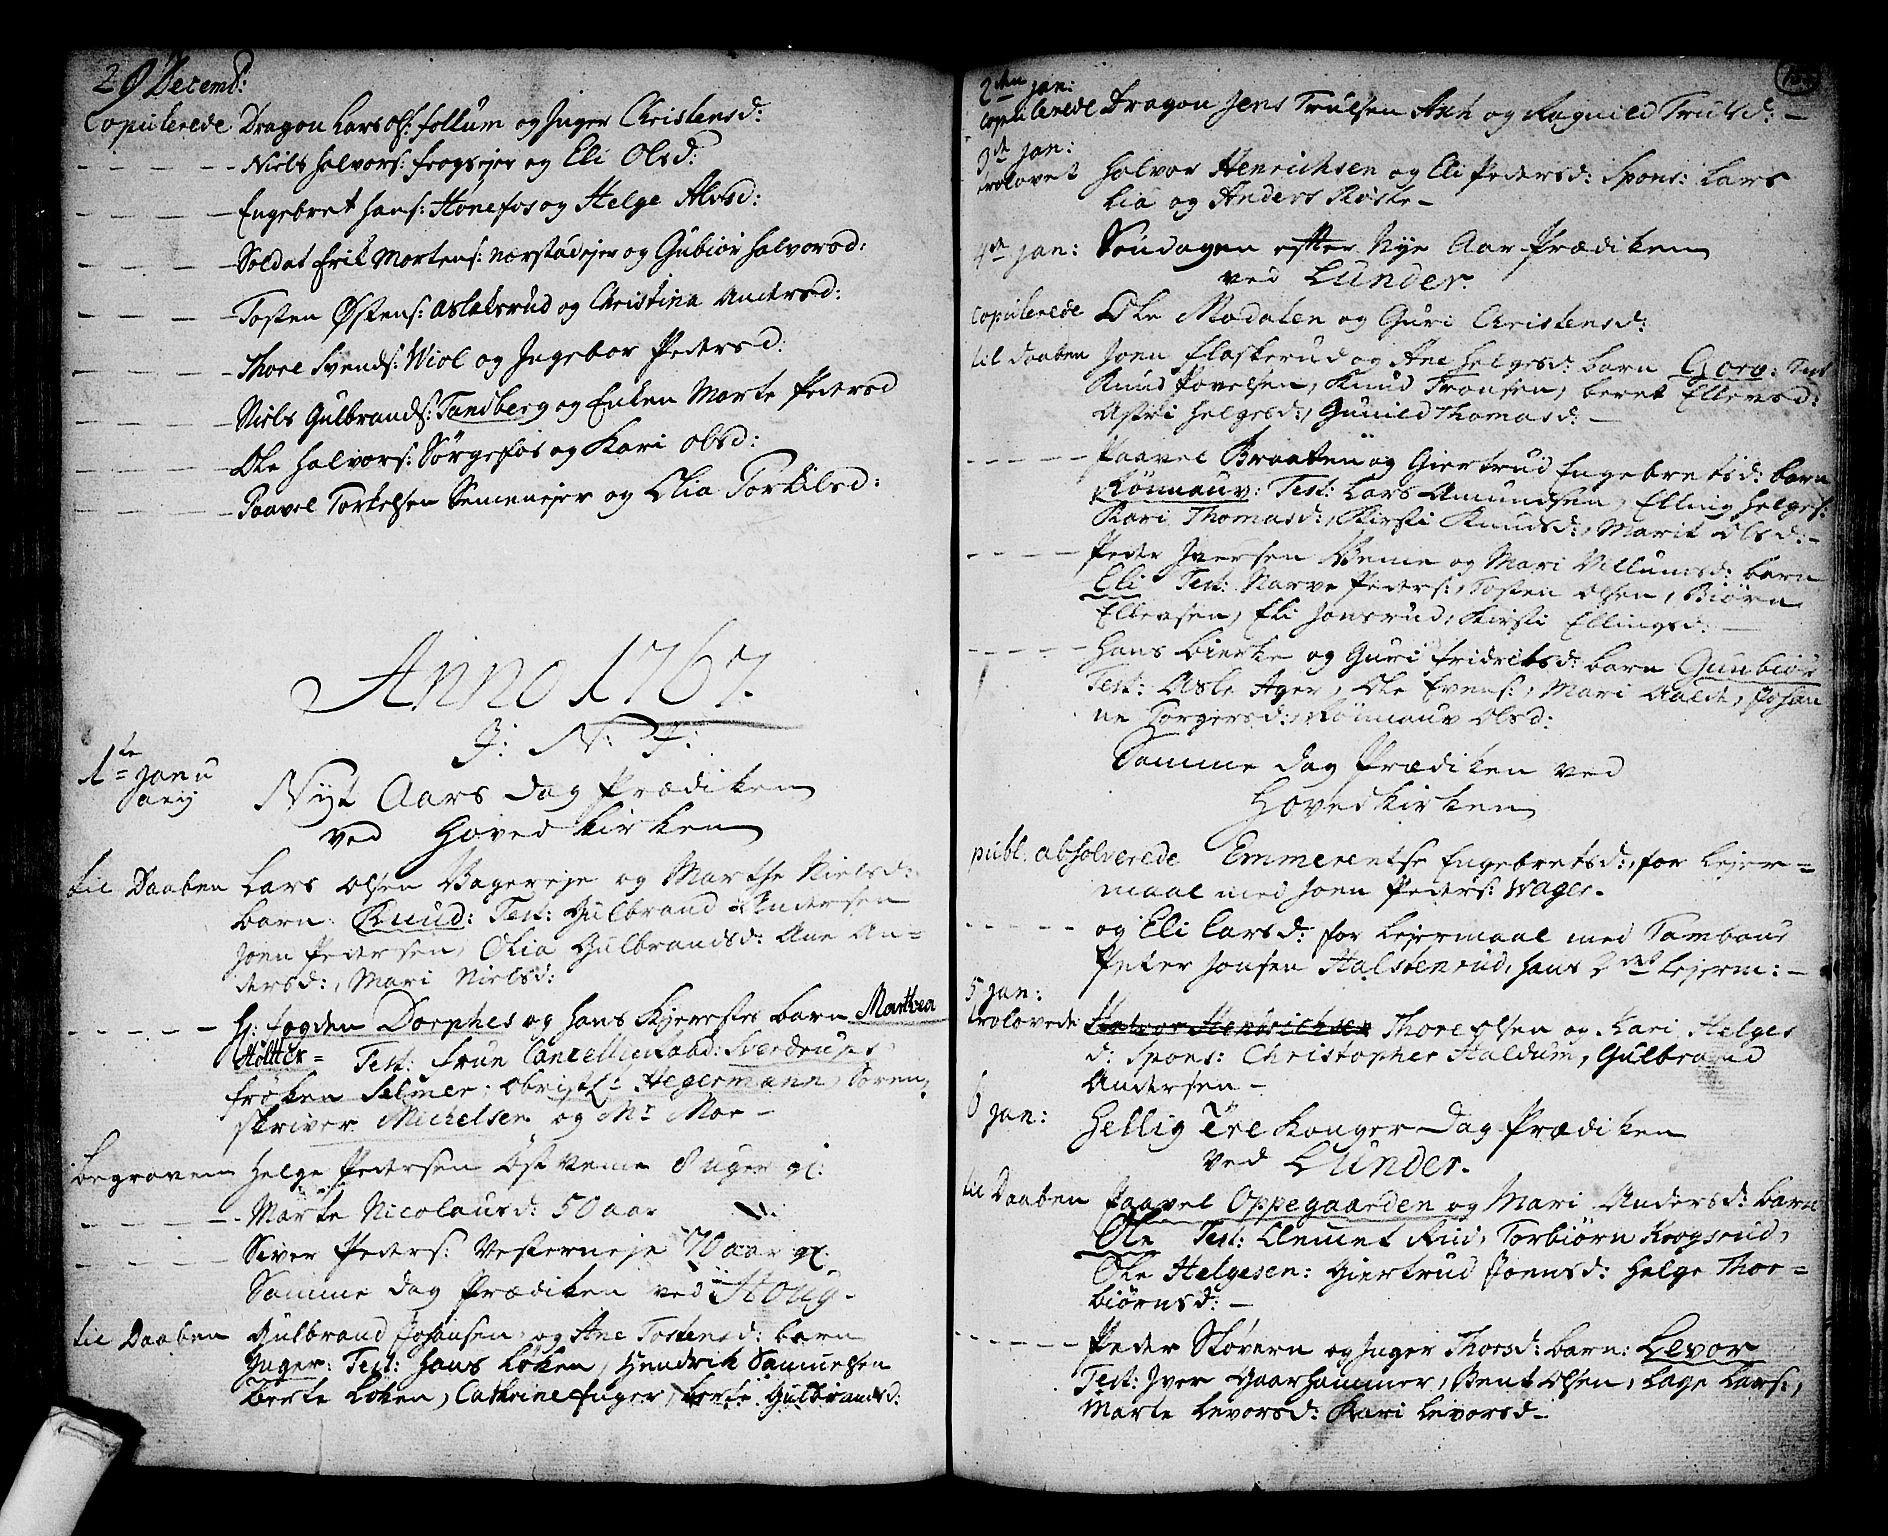 29 Decemb:
Copulerede Dragon Lars Ols: follum og Inger Christensd:
– – – – Niels Halvors: frogsejer og Eli Olsd:
– – – – Engebret Hans: Hónefos og Helge Alvsd:
– – – – Soldat Erik Mortens: Nærstadejer og Gubiør Halvorsd:
– – – – Tosten Østens: Aslaksrud og Christina Andersd:
– – – – Thore Svends: Wiol og Ingebor Pedersd:
– – – – Niels Gulbrands: Tandberg og Enken Marte Pedersd
– – – – Ole Halvors: Sørgefos og Kari Olsd:
– – – – Paavel Torkelsen Semenejer og Olia Torkilsd:
Anno 1767.
J: N: J:
1te Janu
arij
Nyt Aars Dag Prædiken
ved Hovedkirken
til Daaben Lars Olsen Bagereje og Marthe Nielsd:
barn: Knud: Test: Gulbrand Andersen
Joen Pedersen, Olia Gulbrandsd: Ane An=
dersd:, Mari Nielsd:
– – – – – Hj: fogden Dorphes og hans Kjerestes barn Marthea
Holtter= Test: Frun Cancelliraad: Sverdrups,
frøken Selmer, Obristl: Hegermann, Soren=
skriver Michelsen og Mr Moe –
begraven Helge Pedersen Øst Veme 8 uger gl:
– – – – Marte Nicolausd: 50 aar d:
– – – – Siver Peders: Vesterneje 70 aar gl:
Samme dag Prædiken ved Houg –
til Daaben Gulbrand Johansen og Ane Tostensd: barn
Inger: Test: Hans Loken, Hendrik Samuelsen
Berte Loken, Cathrine Enger, Berte Gulbrandsd:
2den Jan:
Copulerede Dragon Jens Truelsen Ask og Ragnild Trulsd: –
3de Jan:
trolovet Halvor Henrichsen og Eli Pedersd: Spons: Lars
Lia og Anders Roske –
4de Jan: Søndagen efter Nye Aar Prædiken
ved Lunder.
Copulerede Ole Modalen og Guri Christensd:
til Daaben Joen Flaskerud og Ane Helgesd: barn Georg: Test
Knud Povelsen, Knud Tronsen, Beret Ellevsd:
Astri Helgesd:, Gunild Thomasd: –
– – – – – Paavel Braaten og Giertrud Engebretsd: barn
Rönnauv: Test: Lars Amundsen, Elling Helges:
Kari Thomasd:, Kirsti Knudsd:, Marit Olsd: –
– – – – Peder Iversen Veme og Mari Villumsd: barn
Eli Test: Narve Peders:, Tosten Olsen, Biørn
Ellevsen, Eli Jonsrud, Kirsti Ellingsd: –
– – – – – Hans Bierke og Guri Fridriksd: barn Gunbiör
Test: Asle Ager, Ole Evens:, Mari Aalde, Johan
ne Torgersd:, Rönnauv Olsd:
Samme dag Prædiken ved
Hovedkirken
publ. absolverede Emmerentse Engebretsd:, for Lejer=
maal med Joen Peders: Wager.
– – – – – og Eli Larsd: for Lejermaal med Tambour
Peter Jonsen Halstenrud, hans 2det Lejerm: –
5 Jan:
trolovede Halvor Henrichsen Thore Olsen og Kari Helges
d: Spons: Christopher Haldum, Gulbrand
Andersen –
6 Jan: Hellig Tre Konger Dag Prædiken
ved Lunder.
til Daaben Paavel Oppegaarden og Mari Andersd: barn
Ole Test: Clemet Rud, Torbiørn Krogsrud,
Ole Helgesen: Giertrud Joensd: Helge Thor=
biørnsd: –
– – – – – Peder Støvern og Inger Thorsd: barn: Levor
Test: Iver Gaarhammer, Bent Olsen, Lage Lars:,
Marte Levorsd: Kari Levorsd –